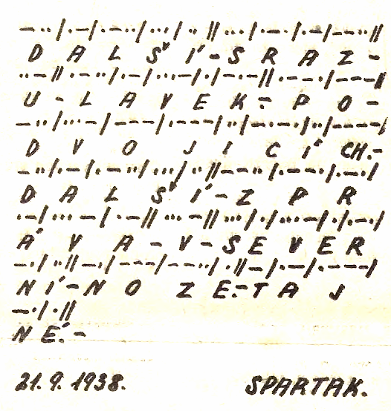 D A L Š Í - S R A Z -
U - L A V E K - P O -
D V O J I C Í CH.-
D A L Š Í - Z P R
Á V A - V - S E V E R
N Í - N O Z E.- T A J
N É.-
21. 9. 1938. SPARTAK.